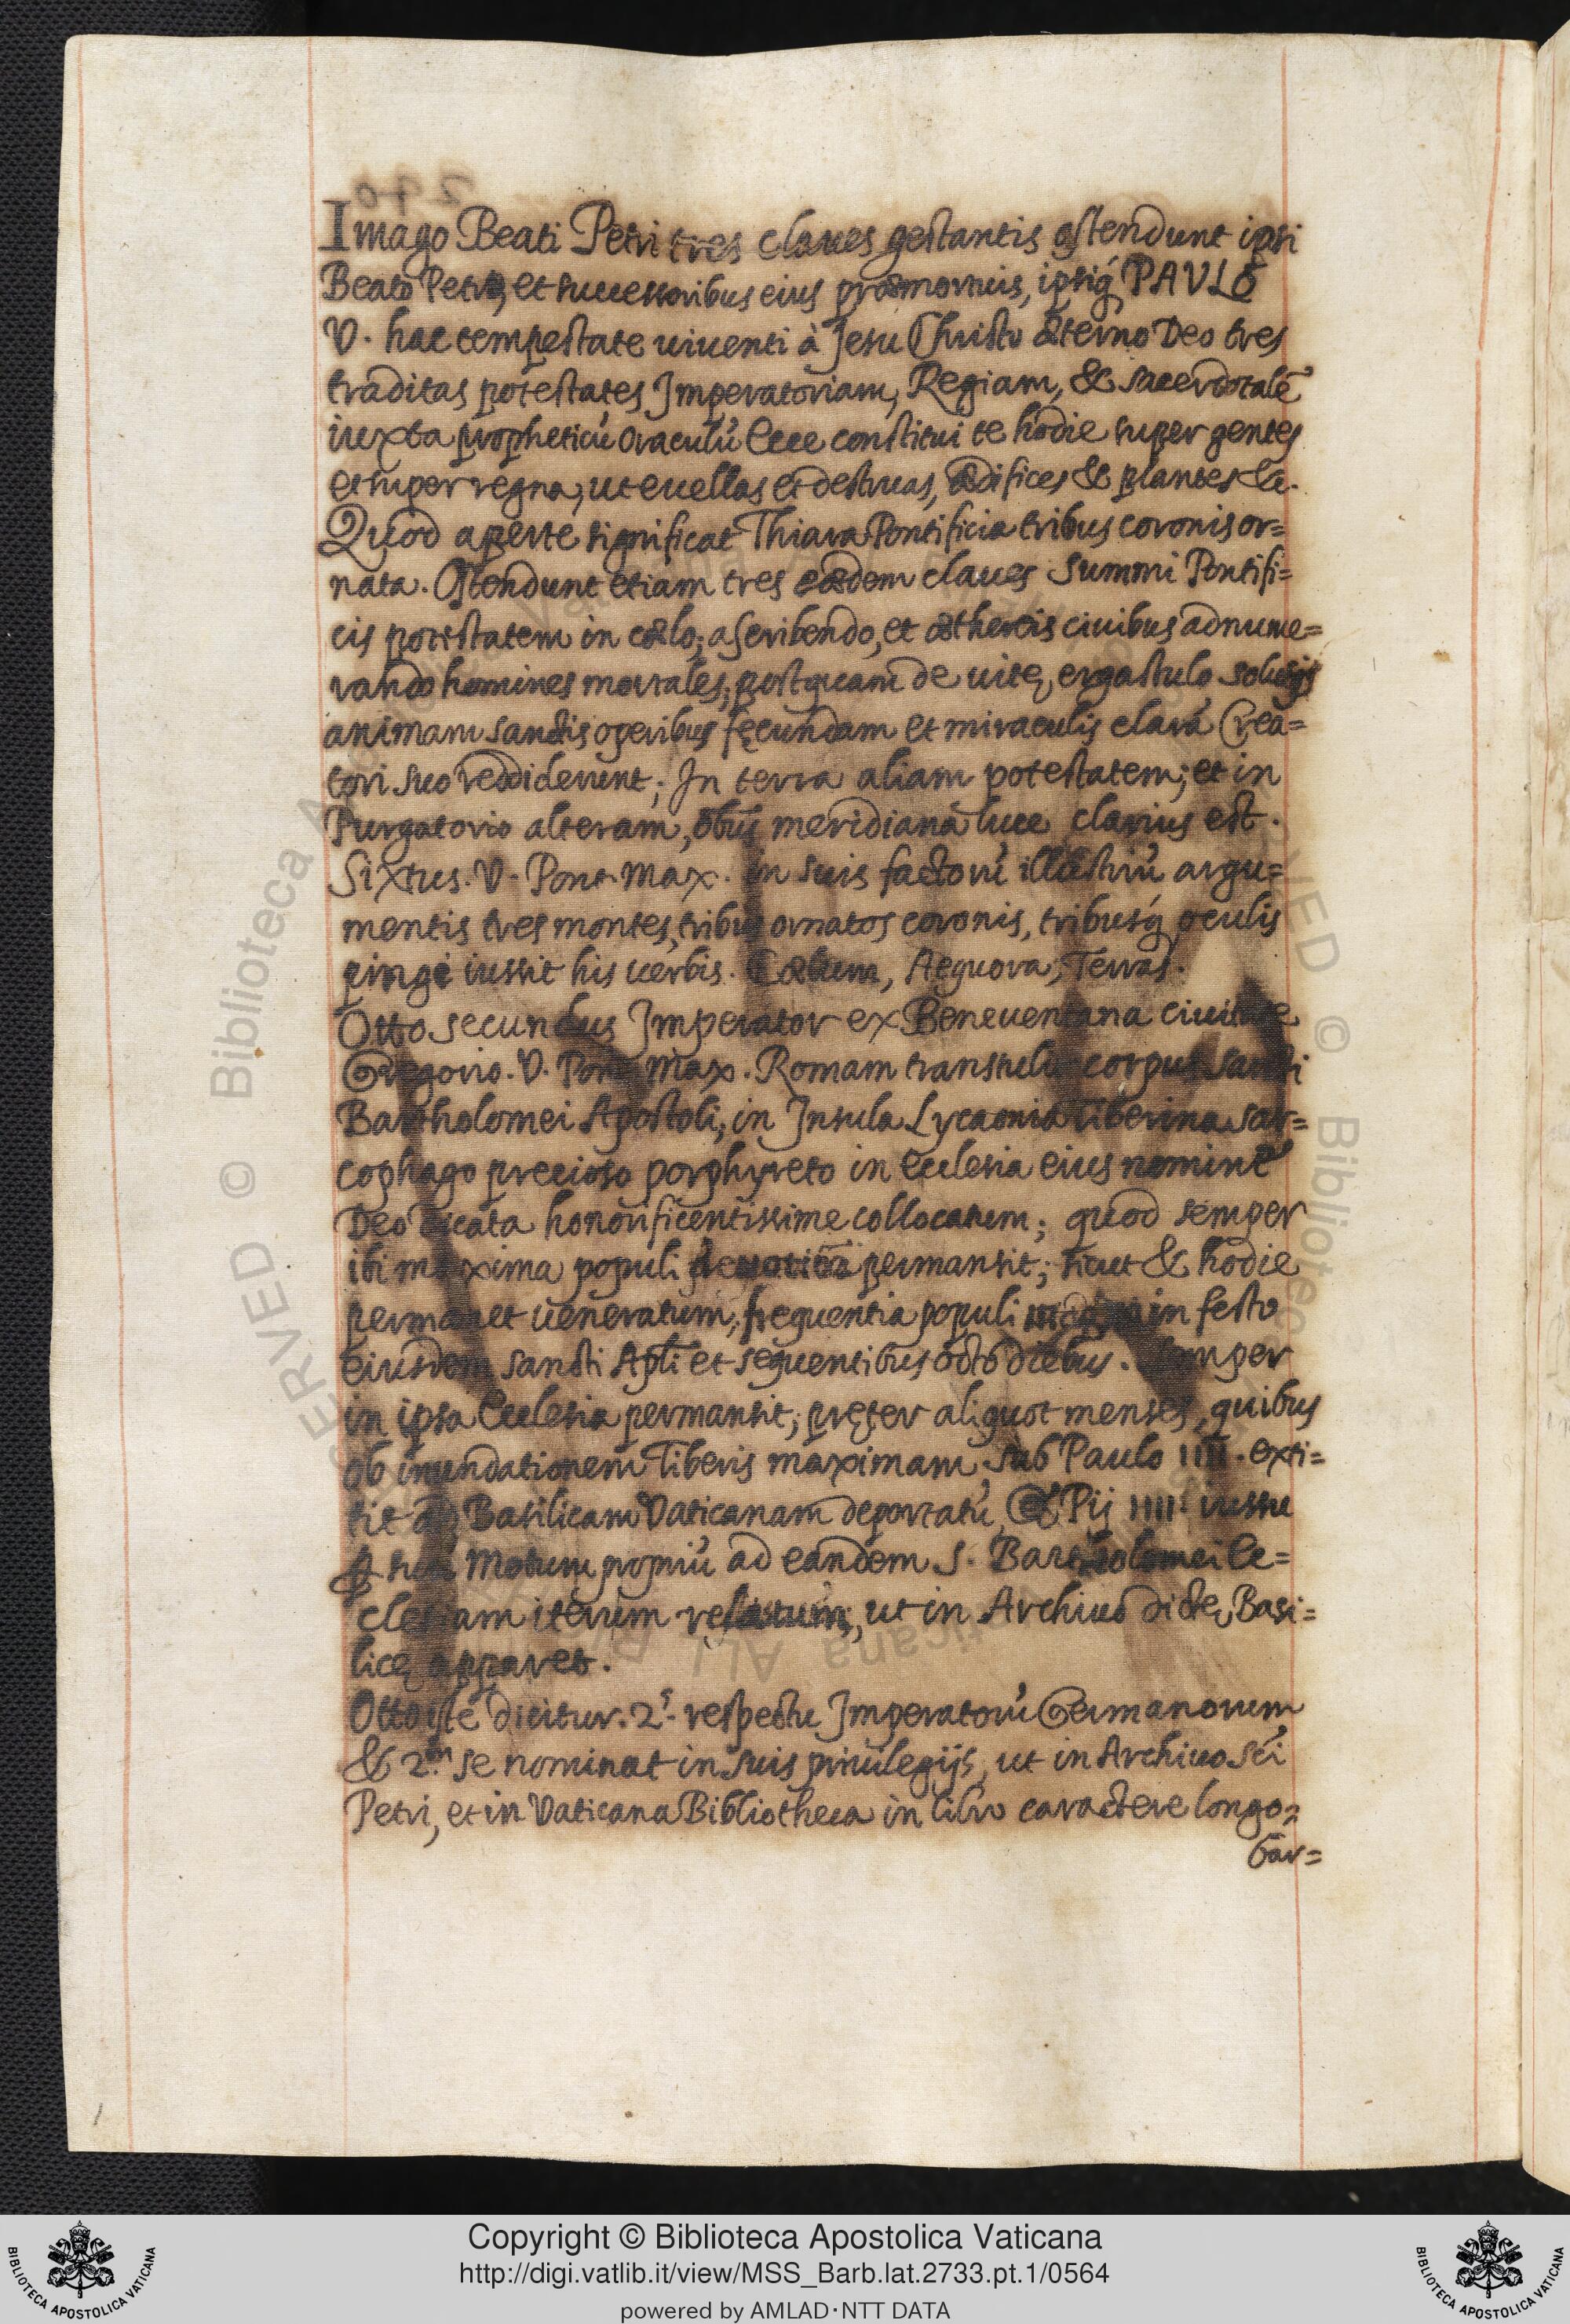 Imago Beati Petri tres claues gestantis ostendunt ipsi
Beato Petro, et successoribus eius præmortuis, ipsiq́ PAVLO
V. hac tempestate uiuenti à Jesu Christo æterno Deo tres
traditas potestates Jmperatoriam, Regiam, & sacerdotalē
iuxta propheticū oraculū Ecce constitui te hodie super gentes
et super regna, ut euellas et destruas, ædifices & plantes &c.
Quod aperte significat Thiara Pontificia tribus coronis or=
nata. Ostendunt etiam tres eædem claues Summi Pontifi=
cis potestatem in cælo; ascribendo, et æthereis ciuibus adnume=
rando homines mortales; postquam de uitę ergastulo
animam sanctis operibus fęcundam et miraculis clarā Crea=
tori suo reddiderunt; Jn terra aliam potestatem; et in
Purgatorio alteram, meridiana luce clarius est.
Sixtus. V. Pont. Max. in suis factorū illustriū argu=
mentis tres montes, tribus ornatos coronis, tribusq́ oculis
pingi iussit his uerbis. Cælum, Aequora, Terras.
Otto secundus Jmperator ex Beneuentana ciuitate
Gregorio. V. Pont. Max. Romam transtulit corpus sancti
Bartholomei Apostoli, in Jnsula Lycaonia Tiberina sar=
cophago precioso porphyreto in Ecclesia eius nomine
Deo dicata honorificentissime collocatum; quod semper
ibi maxima populi deuotiōe permansit; sicut & hodie
permanet ueneratum, frequentia populi magna in festo
eiusdem sancti Apli et sequentibus octo diebus. Semper
in ipsa Ecclesia permansit; pręter aliquot menses, quibus
ob inundationem Tiberis maximam sub Paulo IIII. exti=
tit ad Basilicam Vaticanam deportatū, & Pij IIII. iussu
Motum propriū ad eandem S. Bartholomei Ec=
clesiam iterum relatum; ut in Archiuo dictę Basi=
licę apparet.
Otto iste dicitur. 2.s respectu Jmperatorū Germanorum
& 2.m se nominat in suis priuilegijs, ut in Archiuo sci
Petri, et in Vaticana Bibliotheca in libro caractere longo=
bar=
Copyright © Biblioteca Apostolica Vaticana
http://digi.vatlib.it/view/MSS_Barb.lat.2733.pt.1/0564
powered by AMLAD·NTT DATA
BIBLIOTECA APOSTOLICA VATICANA
BIBLIOTECA APOSTOLICA VATICANA